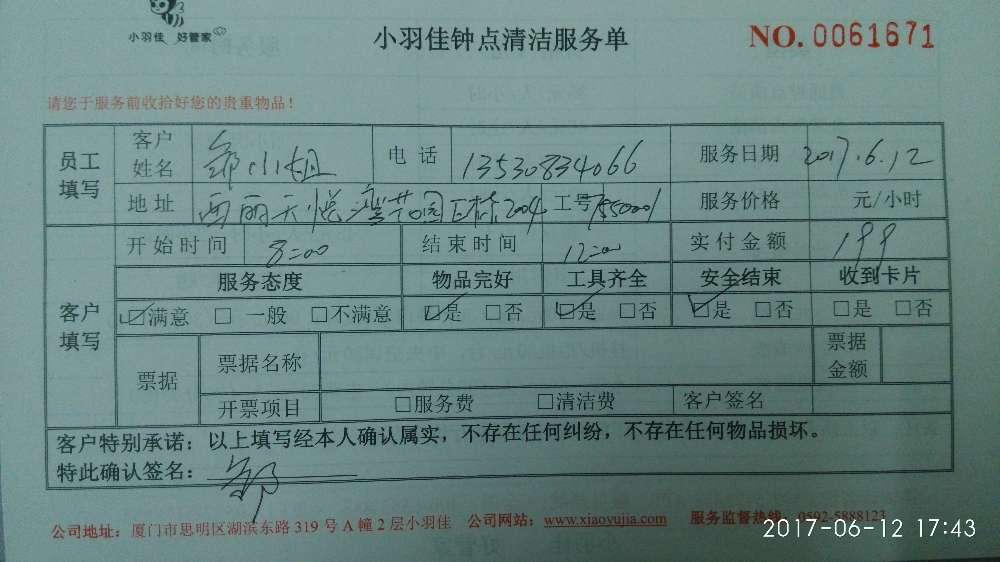 小羽佳 好管家
小羽佳钟点清洁服务单
NO. 0061671
请您于服务前收拾好您的贵重物品！
员工填写 客户姓名 邹小姐 电话 13530834066 服务日期 2017.6.12
地址 西丽天悦湾花园 2004 工号 服务价格 元/小时
客户填写 开始时间 8:00 结束时间 12:00 实付金额 199
服务态度 物品完好 工具齐全 安全结束 收到卡片
☑满意 □ 一般 □不满意 ☑是 □否 ☑是 □否 ☑是 □否 □是 □否
票据 票据名称 票据金额
开票项目 □服务费 □清洁费 客户签名
客户特别承诺：以上填写经本人确认属实，不存在任何纠纷，不存在任何物品损坏。
特此确认签名： 邹
公司地址：厦门市思明区湖滨东路 319 号 A 幢 2 层小羽佳 公司网站：www.xiaoyujia.com 服务监督热线：0592-5888123
2017-06-12 17:43